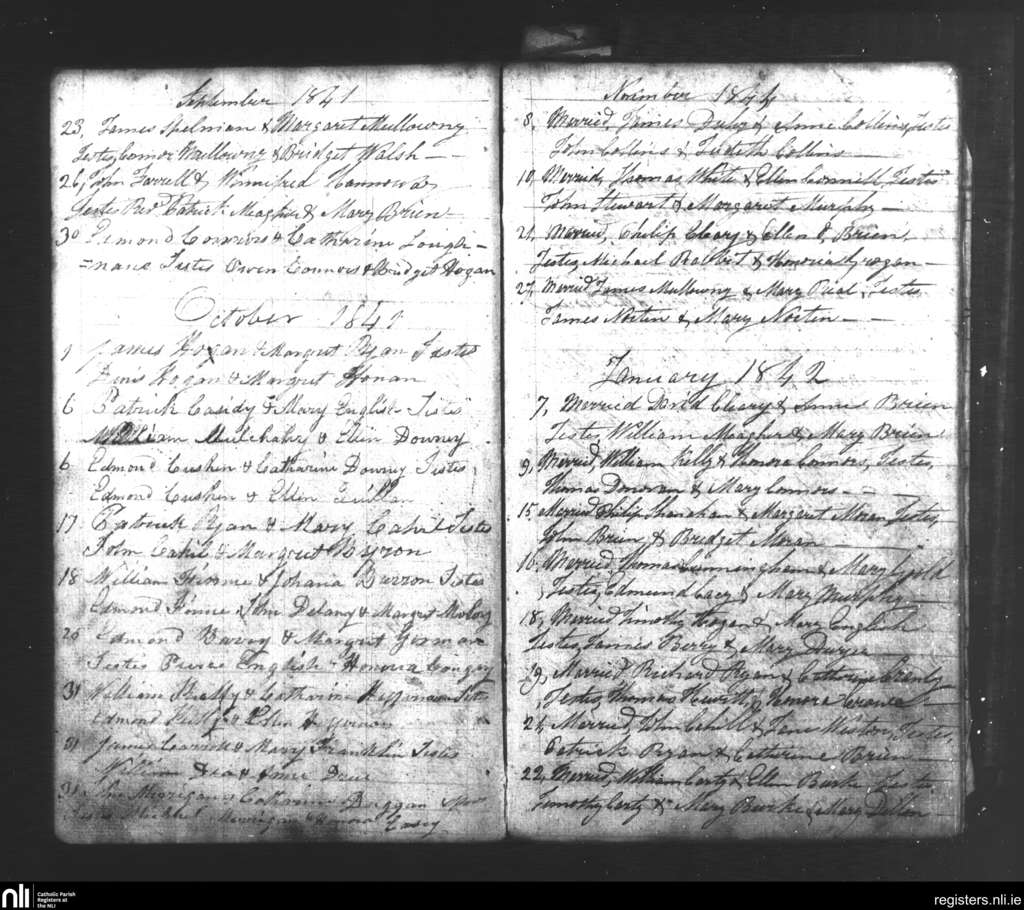 September 1841
23, James Spelman & Margaret Mullowny
Testes, Connor Mullowny & Bridget Walsh
26, John Farrell & Winnifred
Testes Revd Patrick Meagher & Mary Brien
30 Edmond Connors & Catharine Lough-
=nane Testes Owen Connors & Bridget Hogan
October 1841
1 James Hogan & Margret Ryan Testes
Denis Hogan & Margret Honan
6 Patrick Casidy & Mary English Testes
William Mulchahy & Ellen Downey
6 Edmond Cushen & Catharine Downy Testes
Edmond Cushen & Ellen
17 Patrick Ryan & Mary Cahil Testes
John Cahil & Margret
18 William Finnie & Johana Testes
Edmond Finnie John Delany & Margret
25 Edmond & Margret Gorman
Testes Pierce English & Honora
31 William & Catharine
Edmond & Ellen
31 James Carroll & Mary Franklin Testes
William &
31 John & Catharine
Testes Michael & Honora Casey
November 1844
8, Married, James & Anne Collins, Testes
John Collins & Judith Collins
10, Married, Thomas White & Ellen Connill, Testes
John Stewart & Margaret Murphy
21, Married, Philip Cleary & Ellen Brien,
Testes, Michael & Honora Grogan
27, Married James Mullowny & Mary Testes
James Norten & Mary Norten
January 1842
7, Married David Cleary & Brien
Testes, William Meagher & Mary Brien
9, Married, William Kelly & Honora Connors, Testes,
Thomas Donovan & Mary Connors
15, Married Philip Shanahan & Margaret Moran Testes,
John Brien, & Bridget Moran
16, Married Thomas Cunningham & Mary
Testes, Edmund & Mary Murphy
18, Married Timothy Hogan & Mary English
Testes, James Berry & Mary Dwyer
19, Married Richard Ryan & Catherine
Testes, Thomas & Honora Crowe
21, Married, John Cahill & Jane Weston, Testes,
Patrick Ryan & Catherine Brien
22, Married, William Carty & Ellen Burke Testes
Timothy Carty & Mary Burke & Mary Dillon
nli
Catholic Parish
Registers at
the NLI
registers.nli.ie